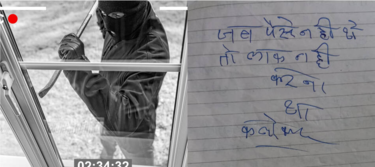 02:34:32
जब पैसे नही थे
तो लाक नही
करना
था